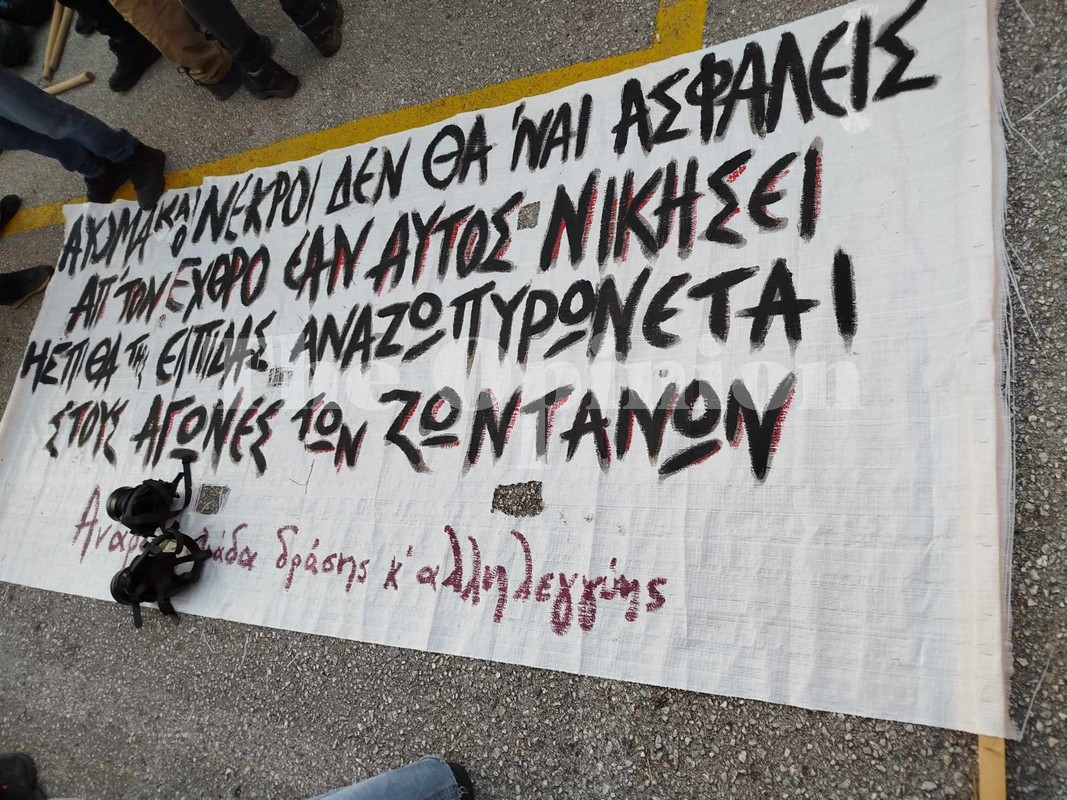 ΑΚΟΜΑ ΚΑΙ ΟΙ ΝΕΚΡΟΙ ΔΕΝ ΘΑ 'ΝΑΙ ΑΣΦΑΛΕΙΣ
ΑΠ' ΤΟΝ ΕΧΘΡΟ ΕΑΝ ΑΥΤΟΣ ΝΙΚΗΣΕΙ
Η ΣΠΙΘΑ ΤΗΣ ΕΛΠΙΔΑΣ ΑΝΑΖΩΠΥΡΩΝΕΤΑΙ
ΣΤΟΥΣ ΑΓΩΝΕΣ ΤΩΝ ΖΩΝΤΑΝΩΝ
δράσης κ' αλληλεγγύης
The Opinion